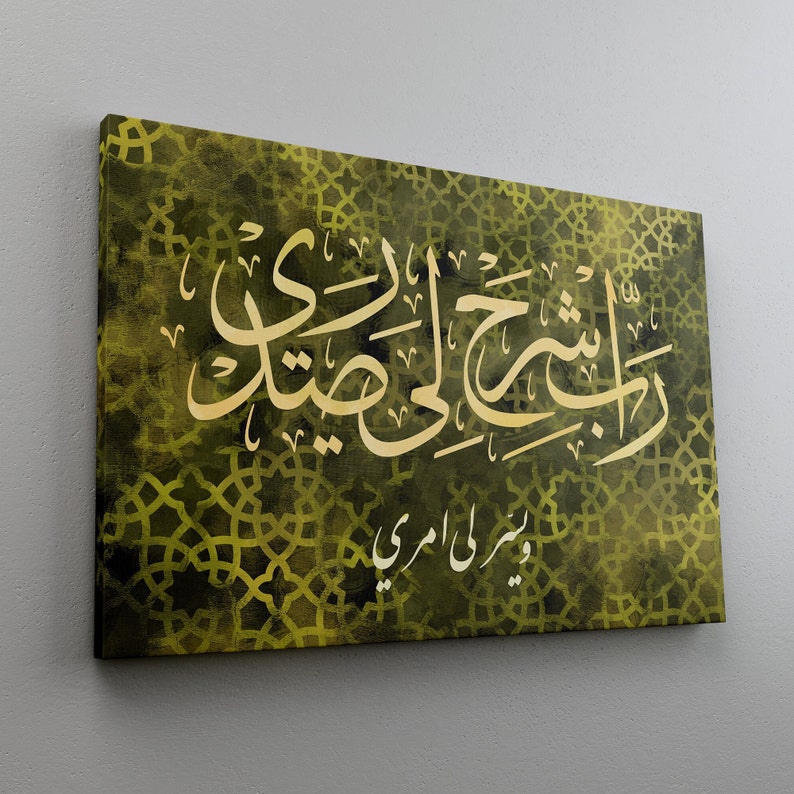 رَبّ اشرَح لِی صَدری
ویسّر لی امري